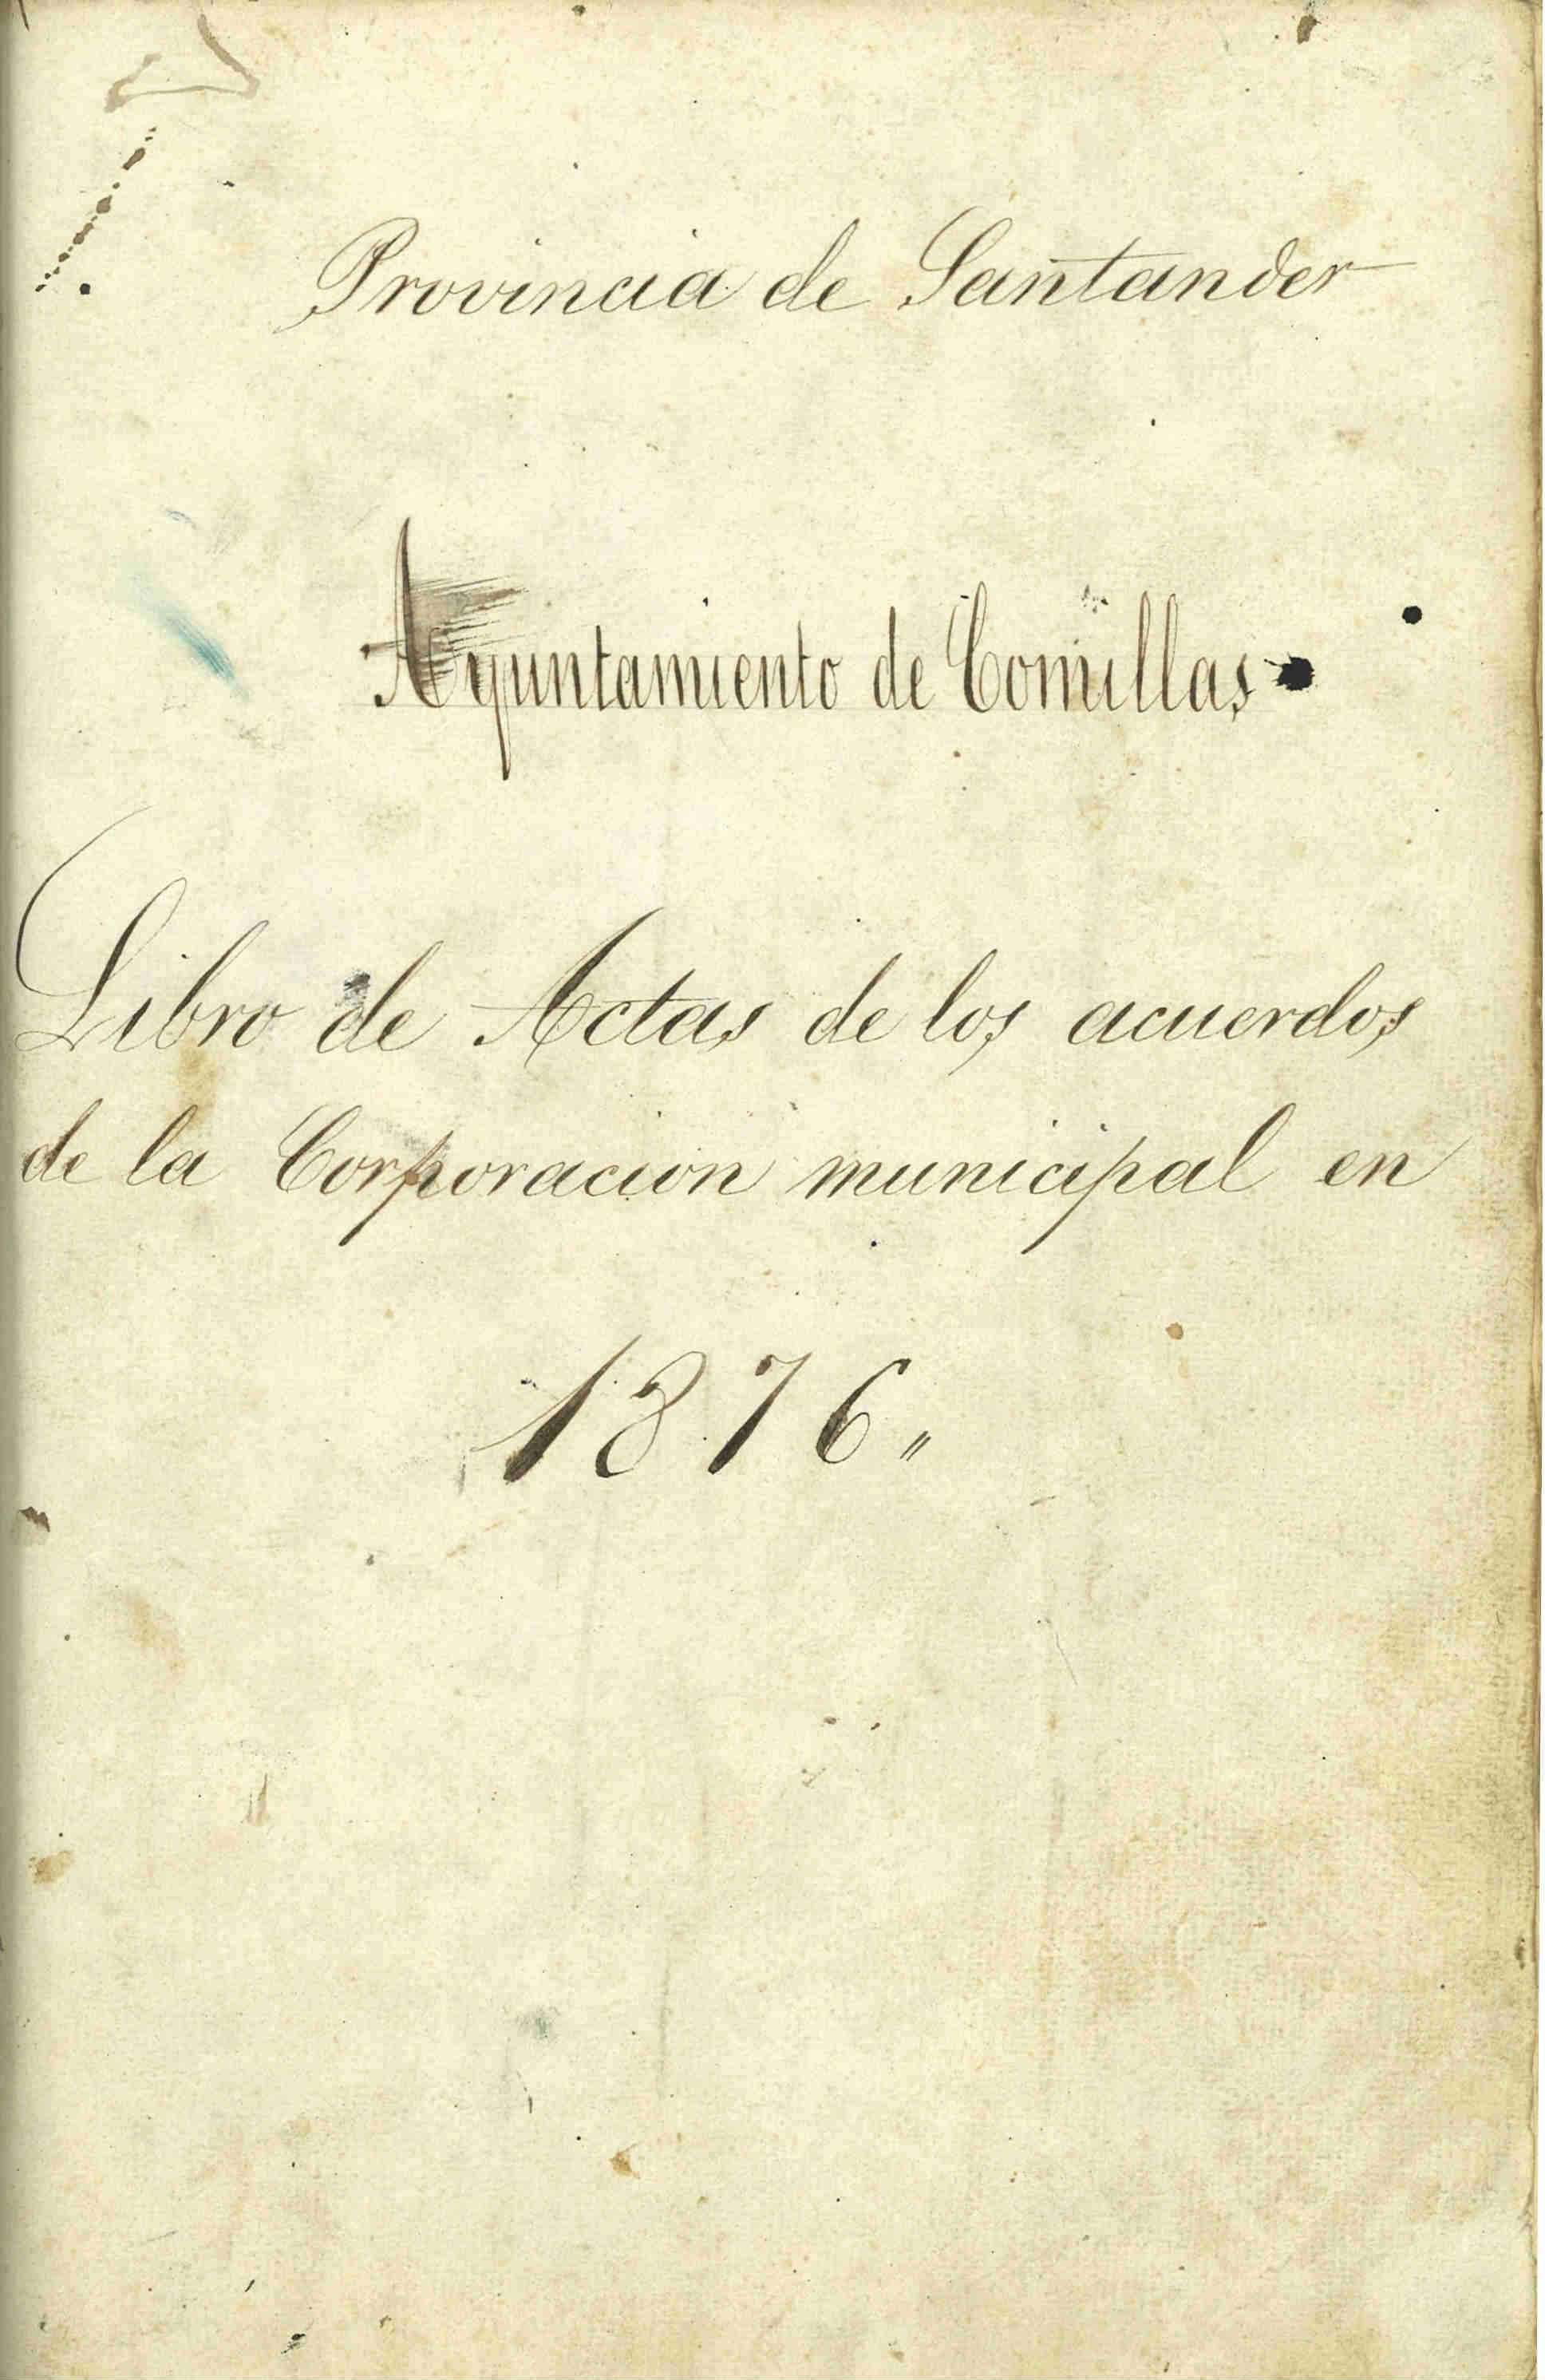 Provincia de Santander
Ayuntamiento de Comillas
Libro de Actas de los acuerdos
de la Corporacion municipal en
1876„